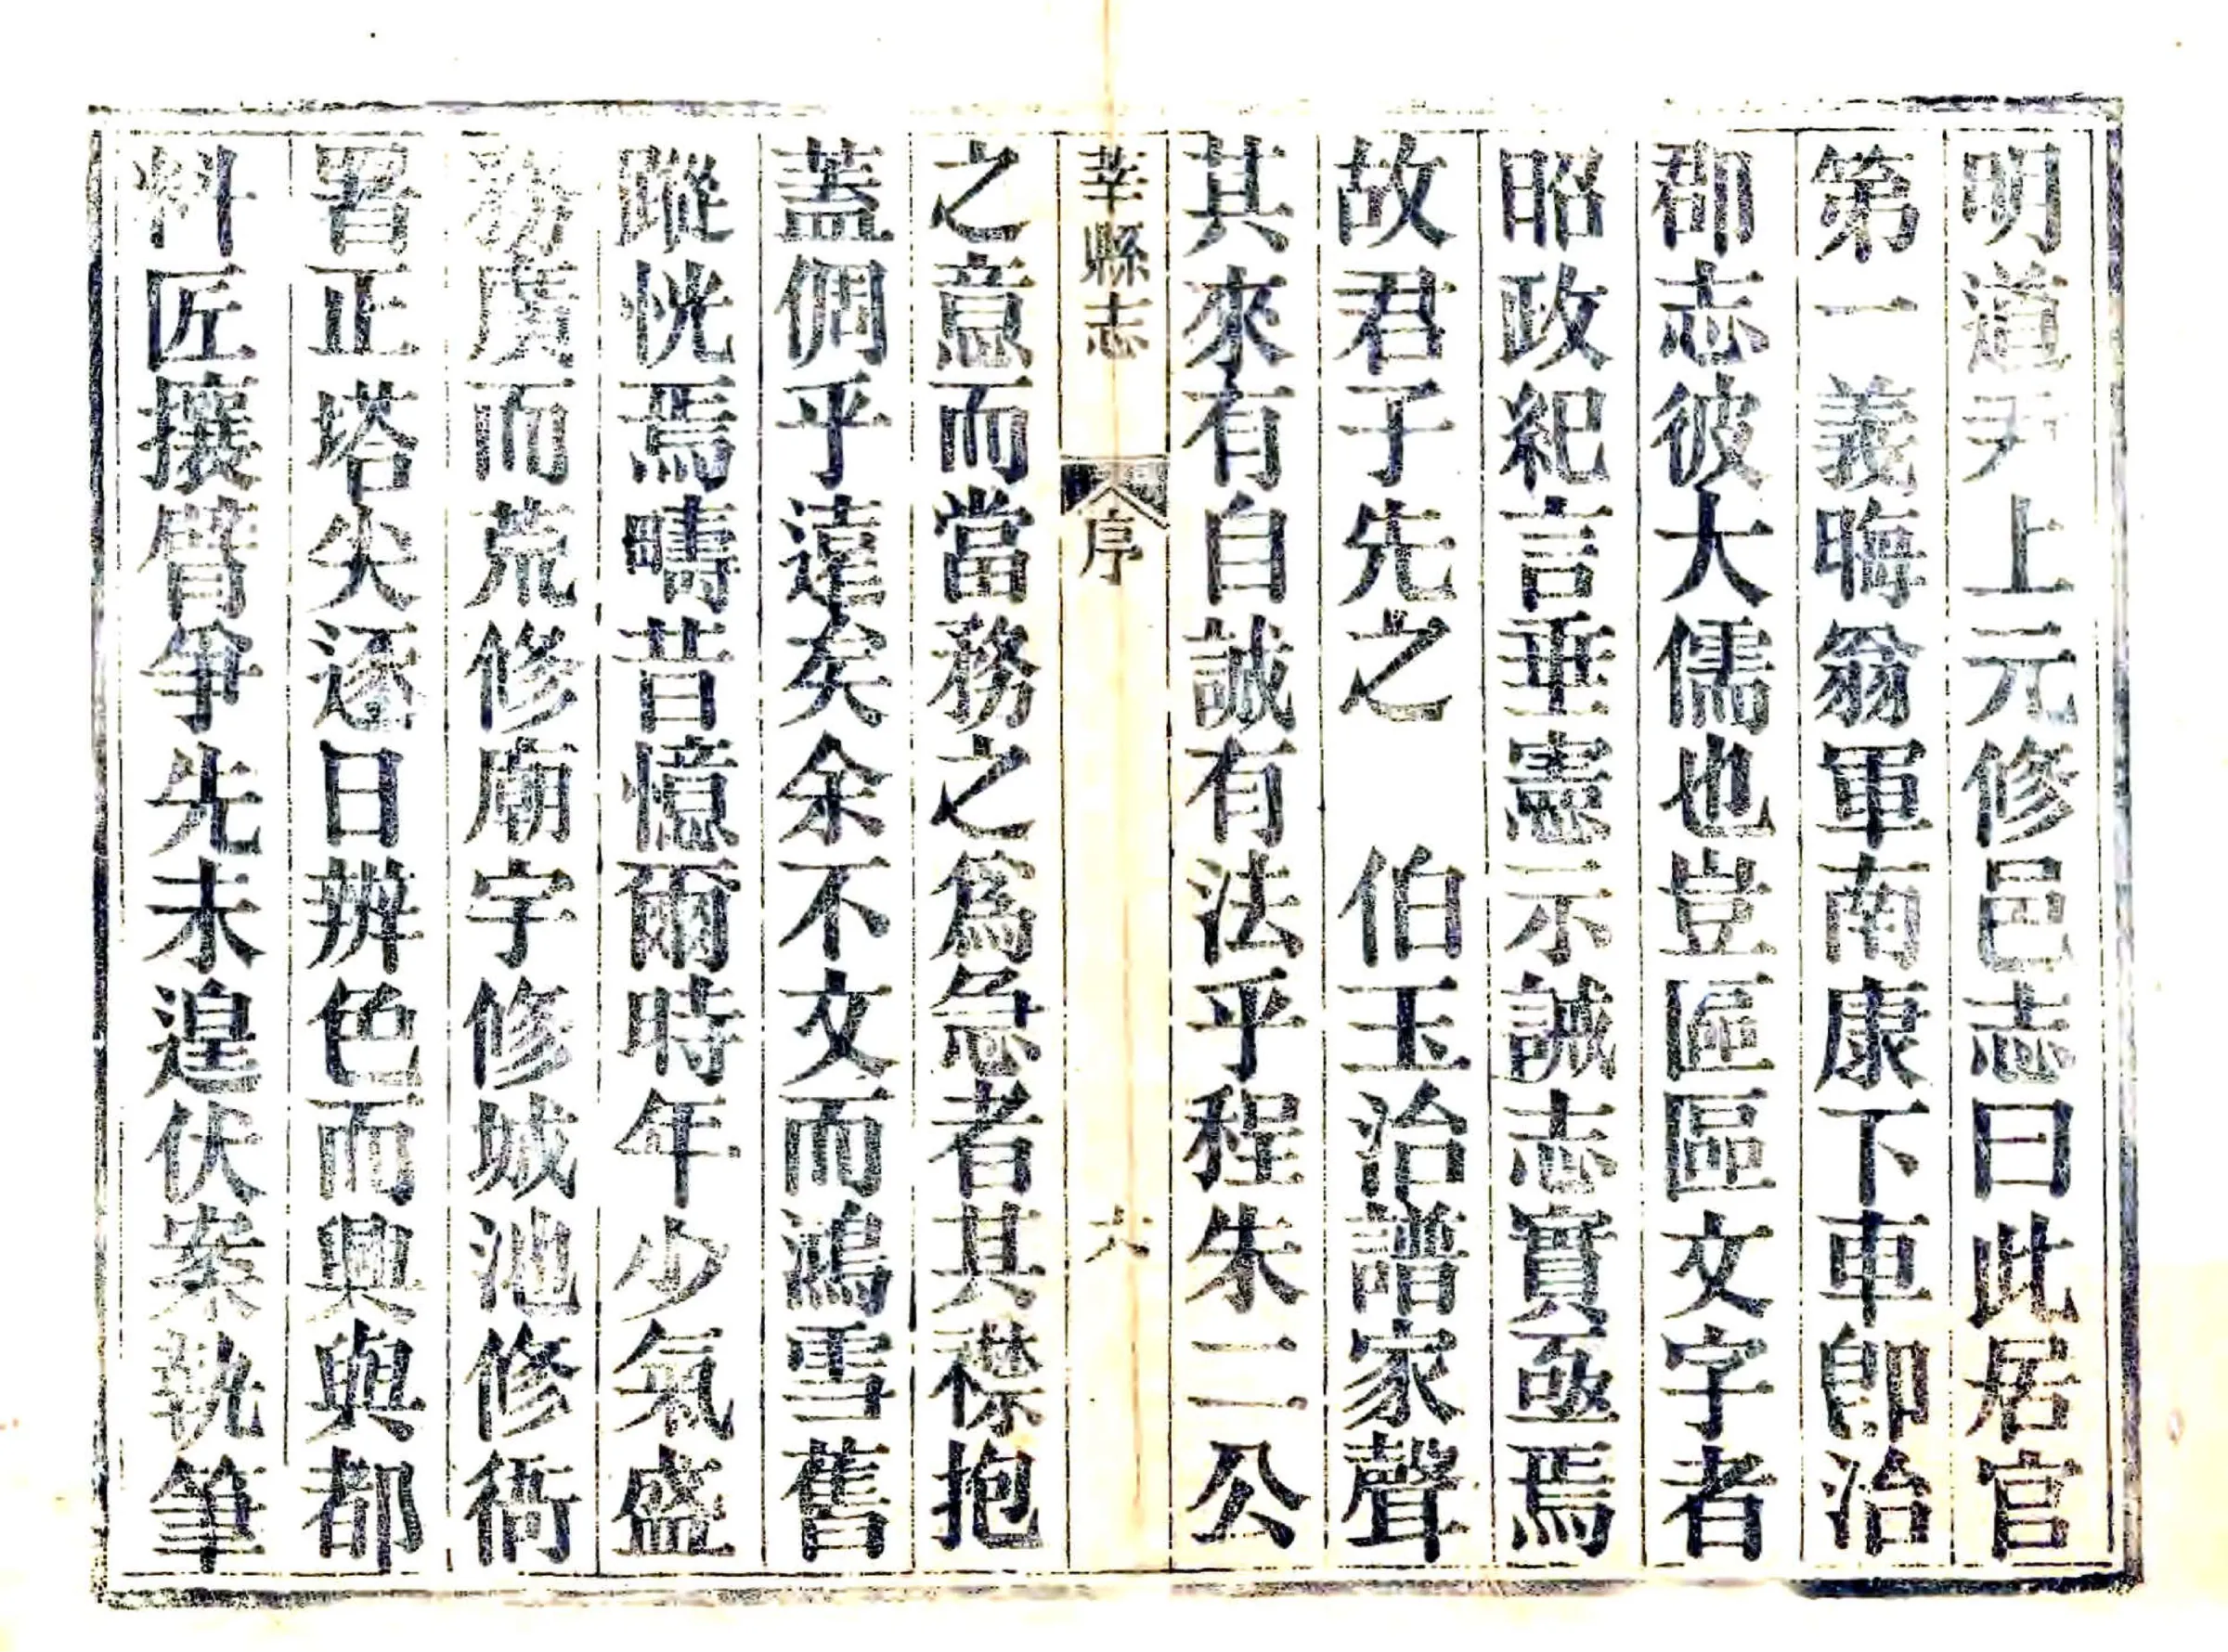 明道尹上元修邑志曰此居官
第一義晦翁軍南康下車即治
郡志彼大儒也豈區區文字者
昭政紀言垂憲示誡志實亟焉
故君子先之　伯玉治譜家聲
其來有自誠有法乎程朱二公
莘縣志　序　六
之意而當務之為急者其襟抱
蓋倜乎遠矣余不文而鴻雪舊
蹤恍焉疇昔憶爾時年少氣盛
務廣而荒修廟宇修城池修衙
署正塔尖逐日辨色而興與都
料匠攘臂爭先未遑伏案執筆